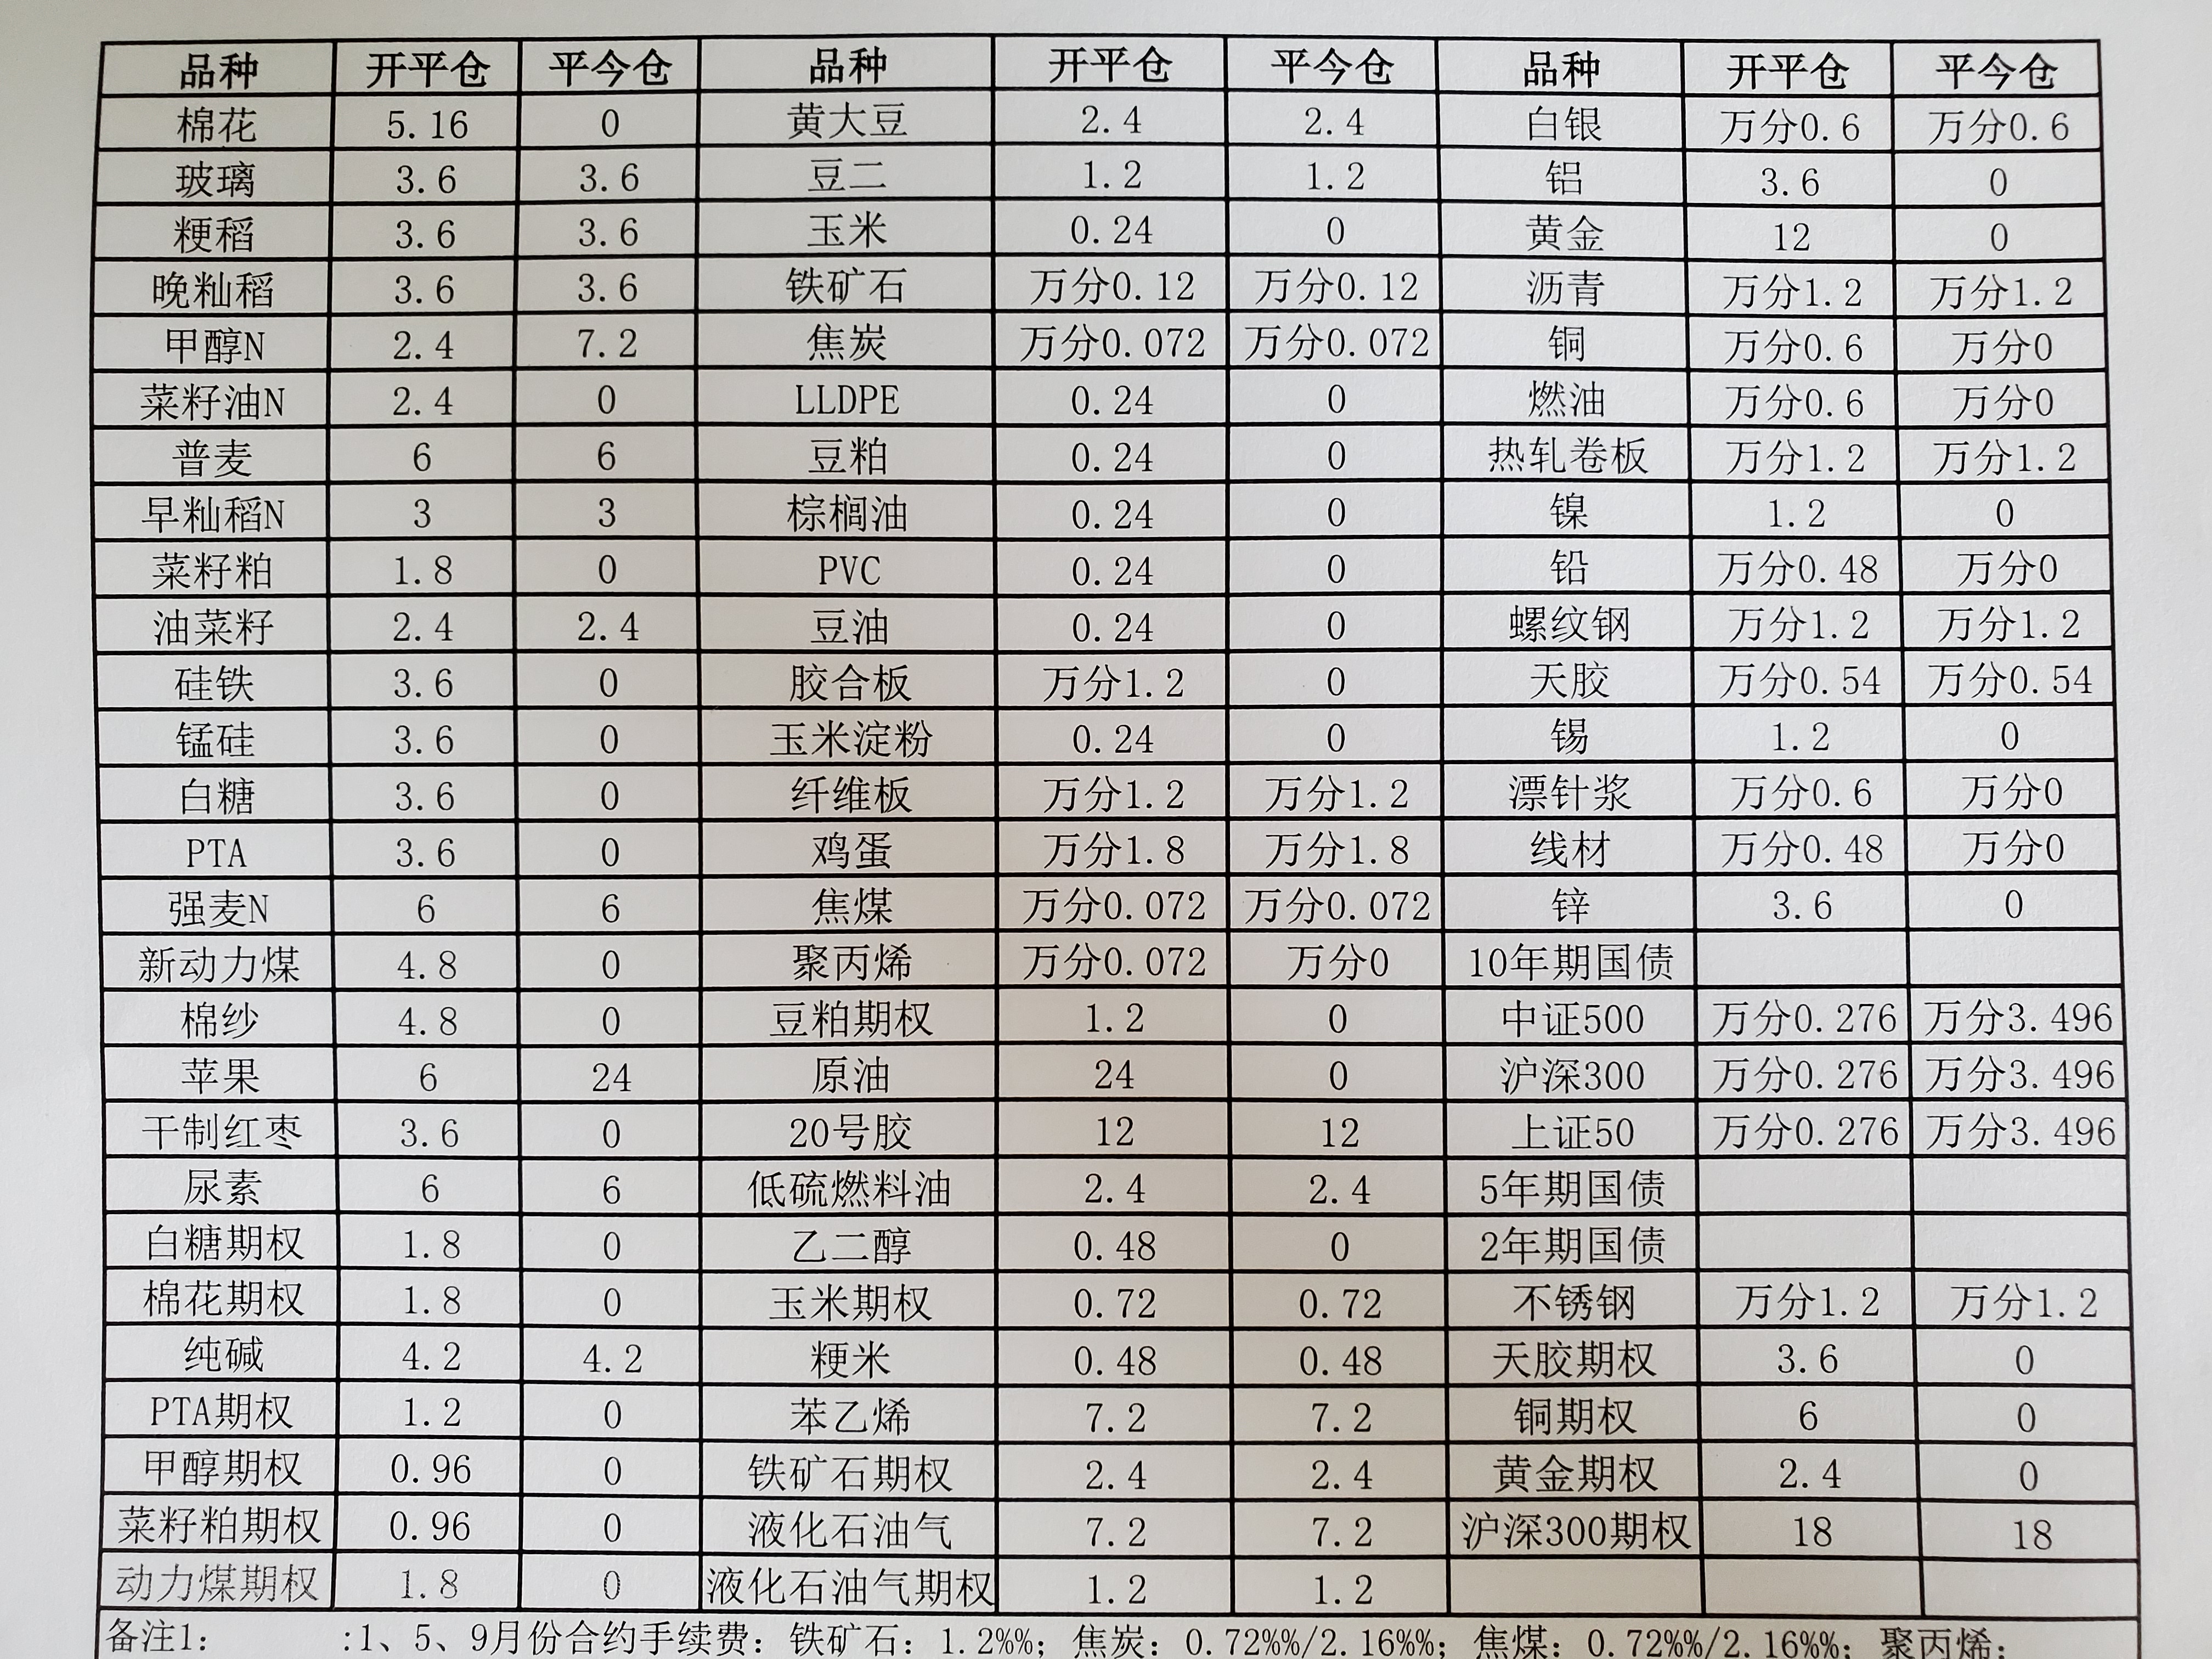 品种 开平仓 平今仓 品种 开平仓 平今仓 品种 开平仓 平今仓
棉花 5.16 0 黄大豆 2.4 2.4 白银 万分0.6 万分0.6
玻璃 3.6 3.6 豆二 1.2 1.2 铝 3.6 0
粳稻 3.6 3.6 玉米 0.24 0 黄金 12 0
晚籼稻 3.6 3.6 铁矿石 万分0.12 万分0.12 沥青 万分1.2 万分1.2
甲醇N 2.4 7.2 焦炭 万分0.072 万分0.072 铜 万分0.6 万分0
菜籽油N 2.4 0 LLDPE 0.24 0 燃油 万分0.6 万分0
普麦 6 6 豆粕 0.24 0 热轧卷板 万分1.2 万分1.2
早籼稻N 3 3 棕榈油 0.24 0 镍 1.2 0
菜籽粕 1.8 0 PVC 0.24 0 铅 万分0.48 万分0
油菜籽 2.4 2.4 豆油 0.24 0 螺纹钢 万分1.2 万分1.2
硅铁 3.6 0 胶合板 万分1.2 0 天胶 万分0.54 万分0.54
锰硅 3.6 0 玉米淀粉 0.24 0 锡 1.2 0
白糖 3.6 0 纤维板 万分1.2 万分1.2 漂针浆 万分0.6 万分0
PTA 3.6 0 鸡蛋 万分1.8 万分1.8 线材 万分0.48 万分0
强麦N 6 6 焦煤 万分0.072 万分0.072 锌 3.6 0
新动力煤 4.8 0 聚丙烯 万分0.072 万分0 10年期国债
棉纱 4.8 0 豆粕期权 1.2 0 中证500 万分0.276 万分3.496
苹果 6 24 原油 24 0 沪深300 万分0.276 万分3.496
干制红枣 3.6 0 20号胶 12 12 上证50 万分0.276 万分3.496
尿素 6 6 低硫燃料油 2.4 2.4 5年期国债
白糖期权 1.8 0 乙二醇 0.48 0 2年期国债
棉花期权 1.8 0 玉米期权 0.72 0.72 不锈钢 万分1.2 万分1.2
纯碱 4.2 4.2 粳米 0.48 0.48 天胶期权 3.6 0
PTA期权 1.2 0 苯乙烯 7.2 7.2 铜期权 6 0
甲醇期权 0.96 0 铁矿石期权 2.4 2.4 黄金期权 2.4 0
菜籽粕期权 0.96 0 液化石油气 7.2 7.2 沪深300期权 18 18
动力煤期权 1.8 0 液化石油气期权 1.2 1.2
备注1: :1、5、9月份合约手续费: 铁矿石: 1.2%%; 焦炭: 0.72%%/2.16%%; 焦煤: 0.72%%/2.16%%; 聚丙烯: